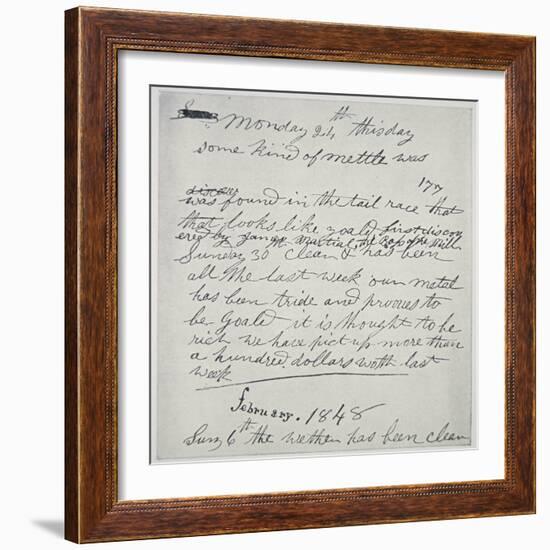 Monday 24th this day
some kind of mettle was
177
was found in the tail race that
that looks like goald first discov
ered by James Martial, the Boss of the Mill
Sunday 30 clean & has been
all the last week our metal
has been tride and prooves to
be goald it is thought to be
rich we have pict up more than
a hundred dollars woth last
week
february. 1848
Sun 6th the wether has been clean